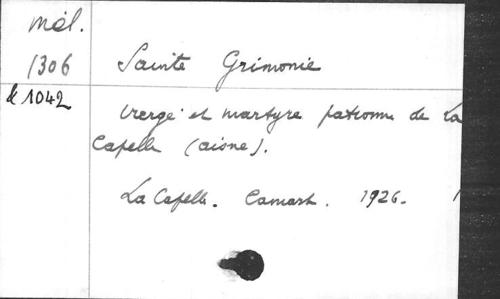 Mél.
1306
& 1042
Sainte Grimonie
Vierge et martyre patronne de La
Capelle (Aisne).
La Capelle. Camart. 1926.